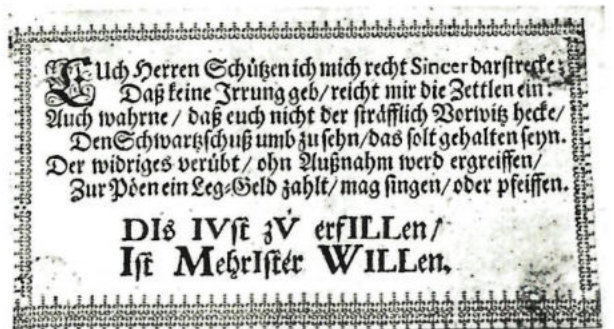 EUch Herren Schützen ich mich recht Sincer darstrecke:
Daß keine Irrung geb/ reicht mir die Zettlen ein:
Auch wahrne/ daß euch nicht der sträfflich Vorwitz hecke/
Den Schwartzschuß umb zu sehn/ das solt gehalten seyn.
Der widriges verübt/ ohn Außnahm werd ergreiffen/
Zur Pöen ein Leg-Geld zahlt/ mag singen/ oder pfeiffen.
DIs IVſt zV́ erfILLen/
Iſt MehrIſter WILLen.